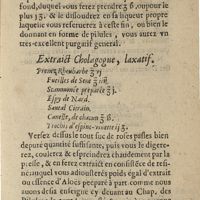 fond, duquel vous ferez prendre ʒ ß. ou pour le
plus ʒ j. & le dissoudrez en sa liqueur propre
laquelle vous reserverez à ceste fin, ou bien le
donnant en forme de pilules, vous aurez un
tres-excellent purgatif general.
Extraict Cholagogue, laxatif.
Prenez Rheubarbe
Fueilles de Sené
Scammonée preparée
Espy de Nard.
Santal Citrain.
Canelle, de chacun ʒ ß.
Trochis d'espine-vinette
Versez dessus le tout suc de roses pasles bien
deputé quantité suffisante, puis vous le digererez
coulerez, & espreindrez chaudement par la
presse, & en ferez extraict en consistēce de resi-
ne auquel vous adjousterez poids égal d'extrait
ou essence d'Aloes preparé à part comme nous
avons desia enseigné cy devant au Chap. des